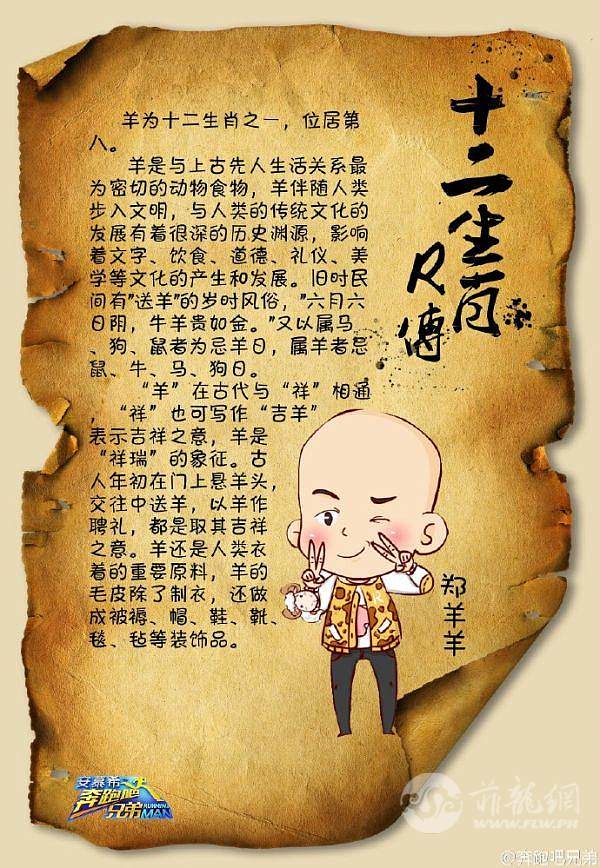 十二生肖
R傳
羊为十二生肖之一，位居第
八。
羊是与上古先人生活关系最
为密切的动物食物，羊伴随人类
步入文明，与人类的传统文化的
发展有着很深的历史渊源，影响
着文字、饮食、道德、礼仪、美
学等文化的产生和发展。旧时民
间有"送羊"的岁时风俗，"六月六
日阴，牛羊贵如金。"又以属马
、狗、鼠者为忌羊日，属羊者忌
鼠、牛、马、狗日。
“羊”在古代与“祥”相通
，“祥”也可写作“吉羊”
表示吉祥之意，羊是
“祥瑞”的象征。古
人年初在门上悬羊头，
交往中送羊，以羊作
聘礼，都是取其吉祥
之意。羊还是人类衣
着的重要原料，羊的
毛皮除了制衣，还做
成被褥、帽、鞋、靴、
毯、毡等装饰品。
郑羊羊
安慕希
奔跑吧
兄弟
RUNNING MAN
菲龍網
WWW.FLW.PH
@奔跑吧兄弟